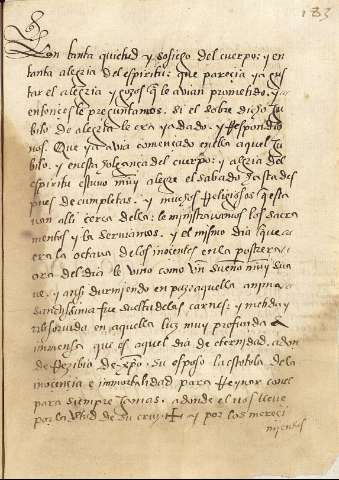 183
Con tanta quietud y sosiego del cuerpo: y en
tanta alegria del espiritu: que parecia ya gus
tar el alegria y gozos que le avian prometido. y a
entonces le preguntamos. si el sobre dicho Ju
bilo de alegria le era ya dado. y Respondio
nos. Que ya avia comenzado en ella aquel Ju
bilo. y en esta folgança del cuerpo: y alegria del
espiritu estuvo muy alegre el sabado hasta des
pues de cumpletas. y muchos Religiosos que esta
van alli çerca della: le ministravamos los sacra
mentos y la serviamos. y el mismo dia que
era la octava de los inocentes en la postrera
ora del dia le vino como un sueño muy sua
ve. y ansi durmiendo en paz aquella anima
sanctissima fue suelta de las carnes: y metida y
absorvida en aquella luz muy profunda &
inmensa que es aquel dia de eternidad. adon
de Rezibio de xpo. su esposo la estola de la
inocencia e immortalidad para Reynar con el
para siempre jamas. adonde el nos lleve
por la virtud de su cruz ✝ y por los mereci
mientos